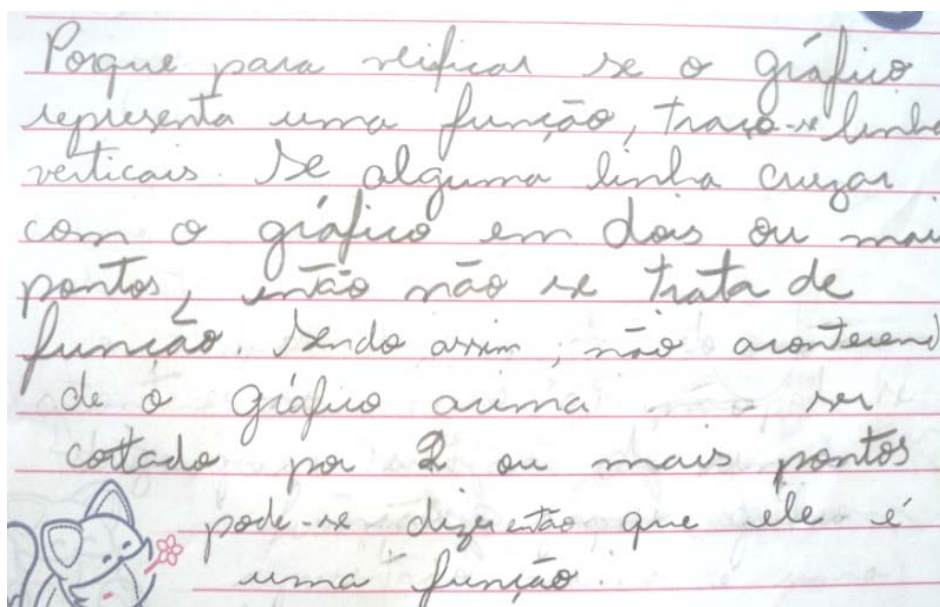 Porque para verificar se o gráfico
representa uma função, traça-se linha
verticais. Se alguma linha cruzar
com o gráfico em dois ou mai
pontos, então não se trata de
função. Sendo assim, não acontecend
de o gráfico acima ser
cortado por 2 ou mais pontos
pode-se dizer então que ele é
uma função.